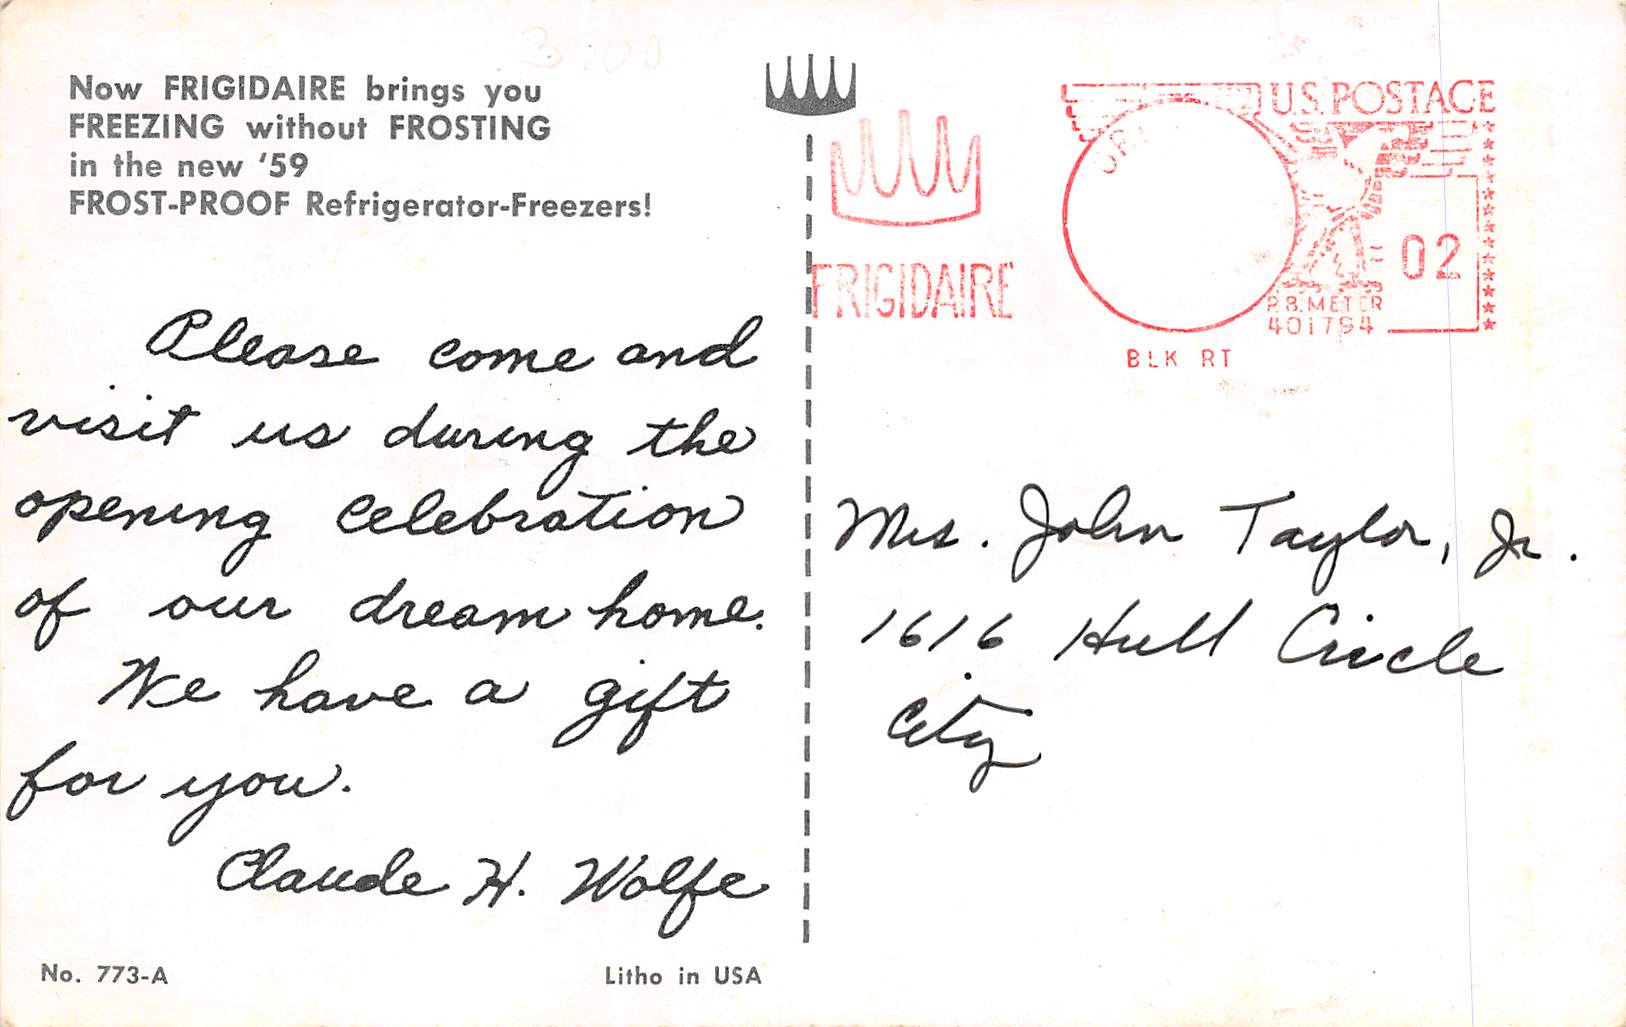 Now FRIGIDAIRE brings you
FREEZING without FROSTING
in the new '59
FROST-PROOF Refrigerator-Freezers!
Please come and
visit us during the
opening celebration
of our dream home.
We have a gift
for you.
Claude H. Wolfe
No. 773-A
Litho in USA
FRIGIDAIRE
U.S. POSTAGE
02
P.B. METER
401794
BLK RT
Mrs. John Taylor, Jr.
1616 Hull Circle
City